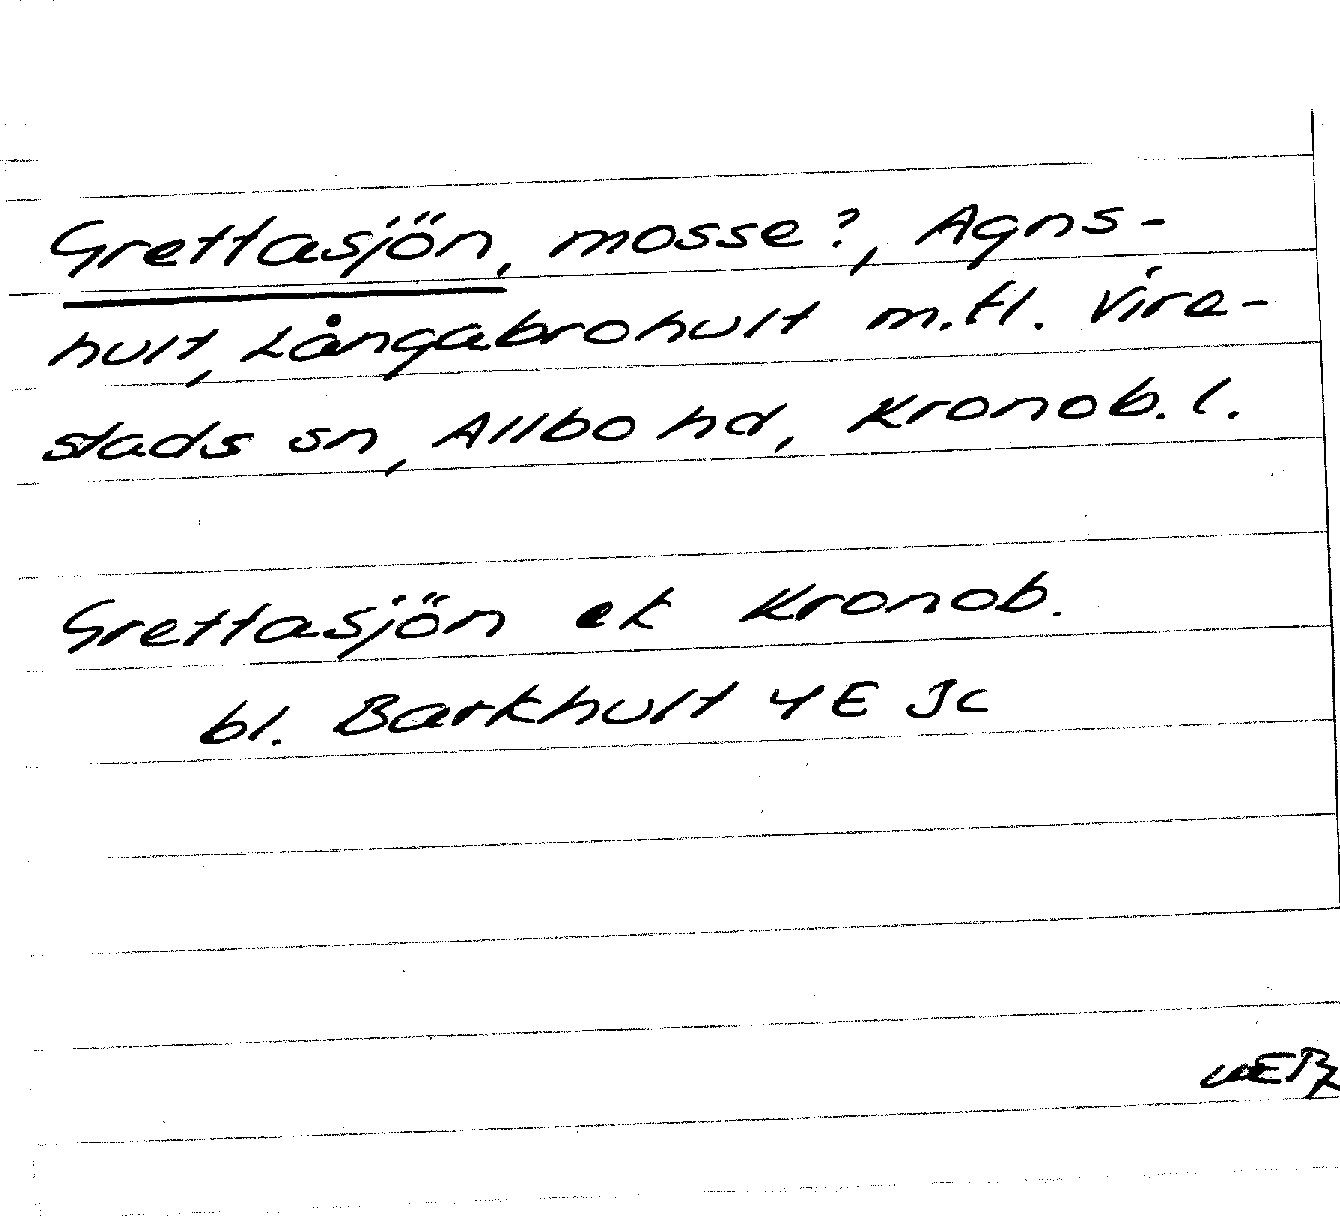 Grettasjön, mosse?, Agns-
hult, Långabrohult m.fl. Vire-
stads sn, Allbo hd, Kronob. l.
Grettasjön ek Kronob.
bl. Barkhult 4E Jc